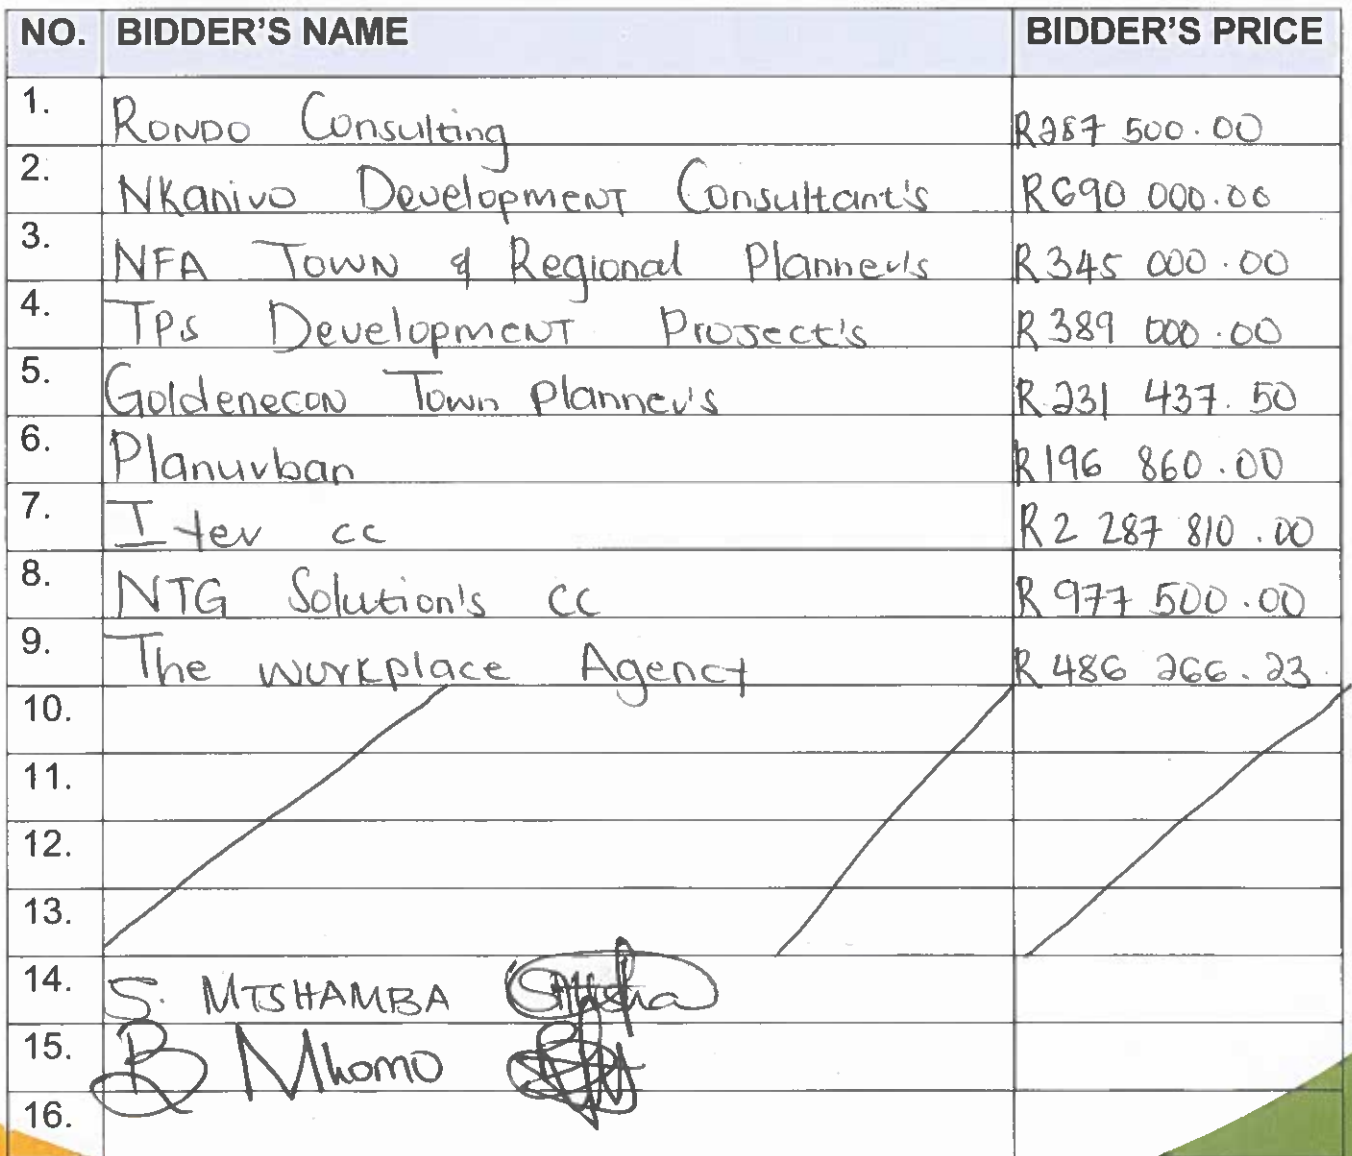 NO. BIDDER'S NAME BIDDER'S PRICE
1. RONDO Consulting R287 500.00
2. NKanivo Development Consultant's R690 000.00
3. NFA TOWN & Regional Planner's R345 000.00
4. TPs Development Project's R389 000.00
5. Goldenecon Town Planner's R231 437.50
6. Planurban R196 860.00
7. Iter cc R2 287 810.00
8. NTG Solution's CC R977 500.00
9. The workplace Agency R486 266.23
10.
11.
12.
13.
14. S. MTSHAMBA
15. B Mkomo
16.